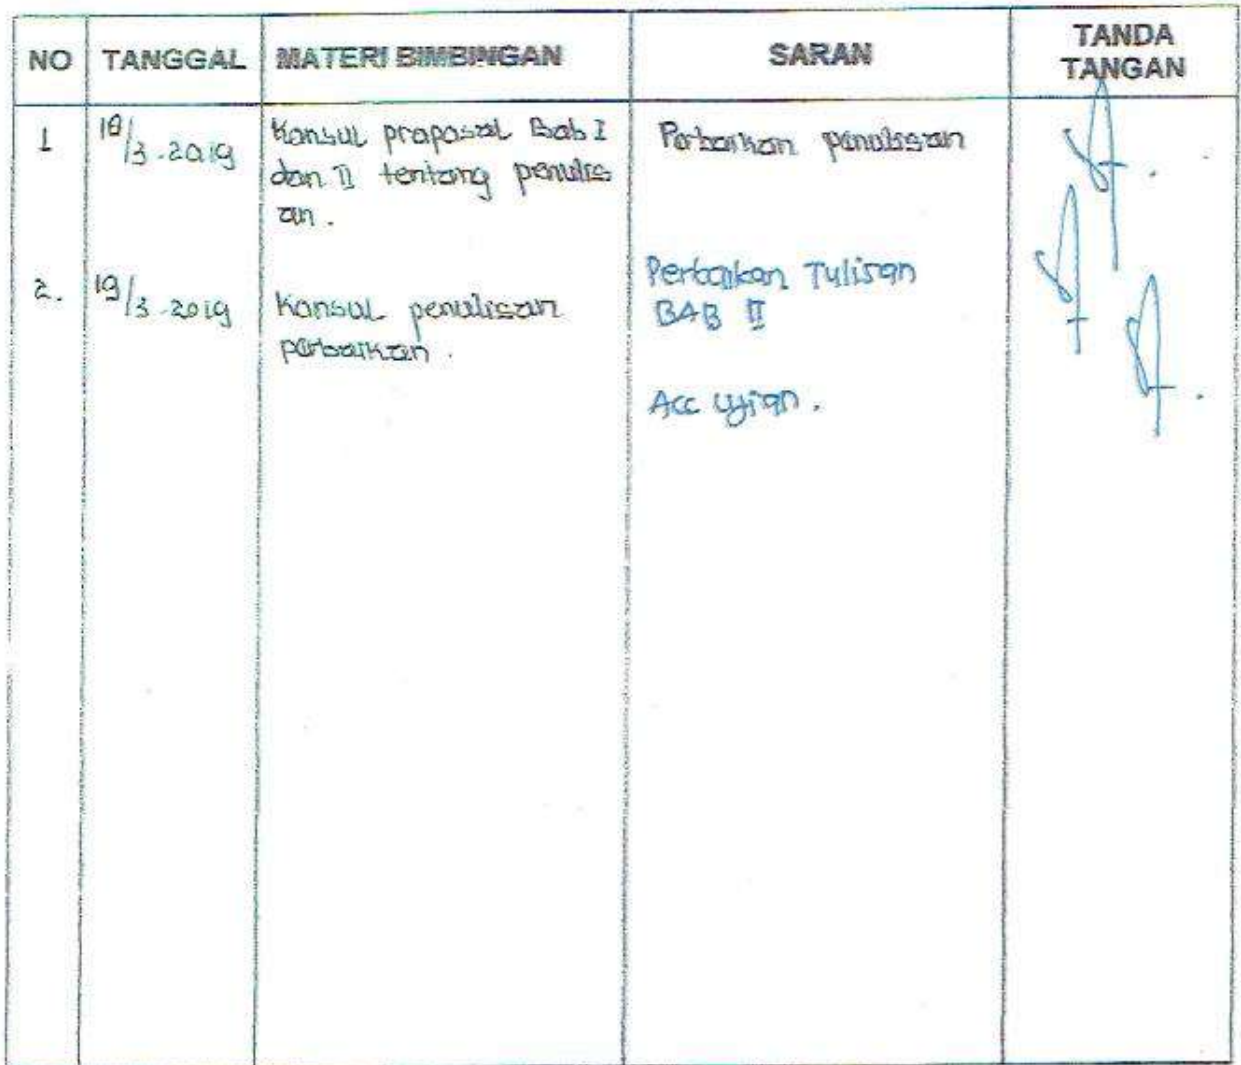 NO TANGGAL MATERI BIMBINGAN SARAN TANDA TANGAN
1 18/3-2019 Konsul proposal Bab I Perbaikan penulisan
dan II tentang penulis
an.
2. 19/3-2019 Konsul penulisan Perbaikan Tulisan
perbaikan. BAB II
Acc Ujian.